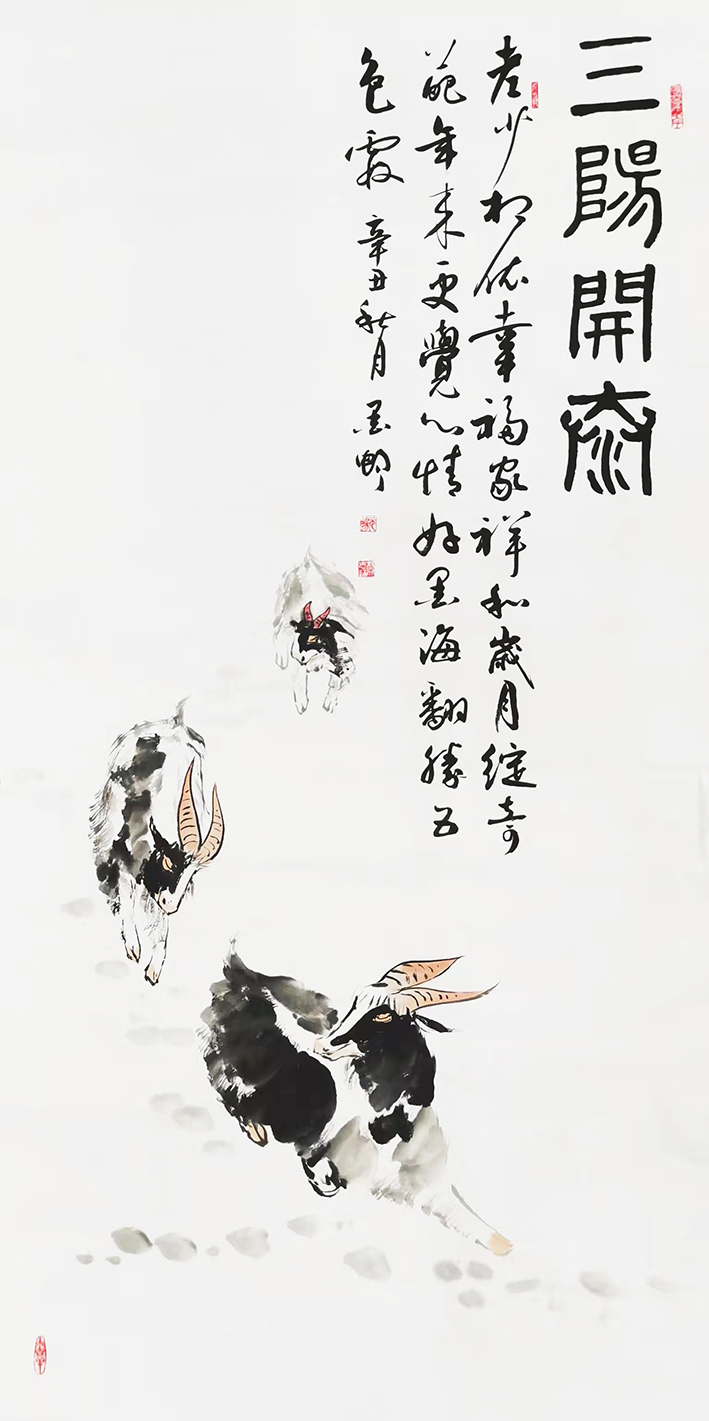 三陽開泰
老少相依幸福家祥和歲月綻奇
葩年来更覺心情好墨海翻騰五
色霞辛丑秋月墨卿